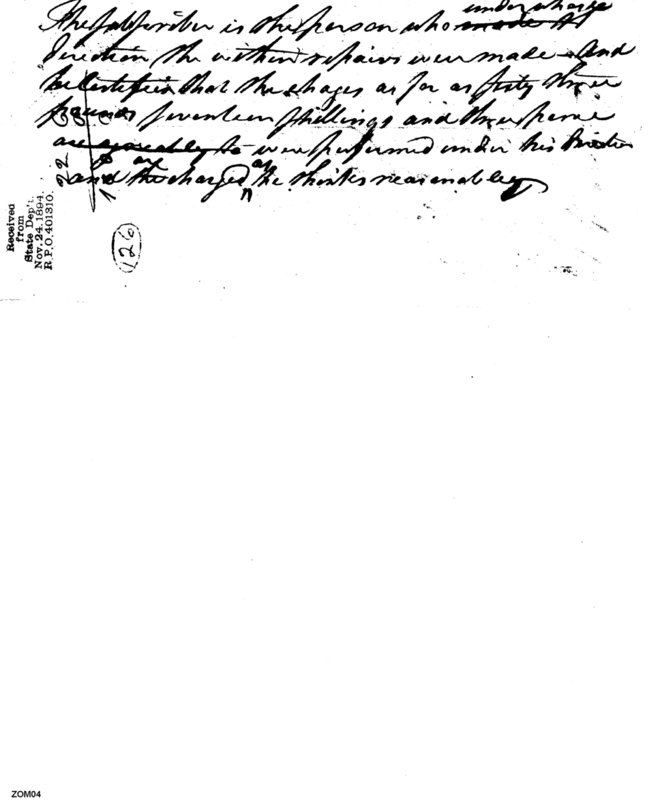 under whose
The Subscriber is the person who made At
direction the within repairs were made and
he Certifies that the chages as far as fifty three
pounds Seventeen Shillings and three pence
are agreeably to were performed under his direction
and the charged he thinks reasonable
Received
from
State Dep't.
Nov. 24. 1894.
R.P.O. 401310.
22
(126)
ZOM04